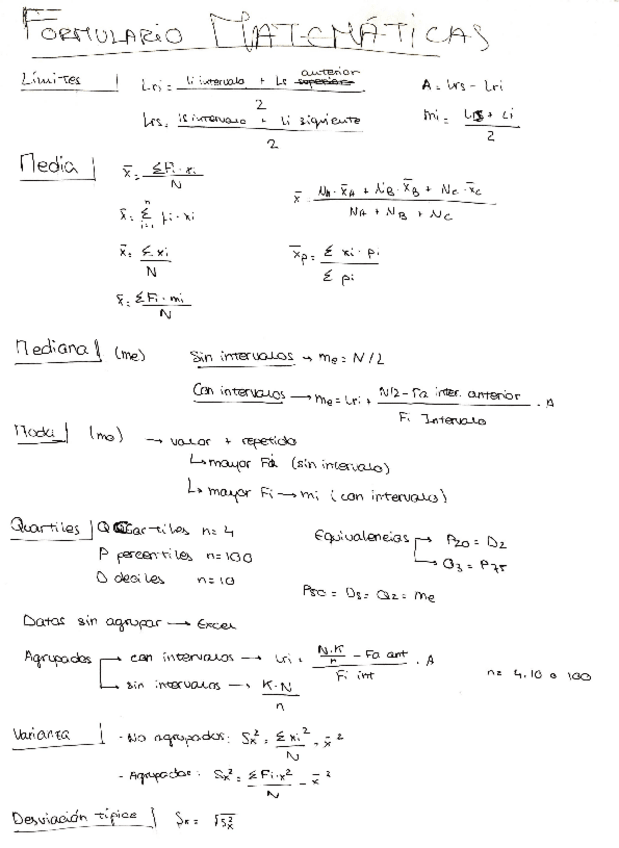 FORMULARIO MATEMÁTICAS
Límites
Lri = li intervalo + Ls anterior / 2
A = Lrs - Lri
Lrs = ls intervalo + Li siguiente / 2
mi = Lrs + Li / 2
Media
x̄ = ΣFi · xi / N
x̄ = NA · x̄A + NB · x̄B + NC · x̄C / NA + NB + NC
x̄ = Σ fi · xi
x̄ = Σ xi / N
x̄p = Σ xi · pi / Σ pi
x̄ = ΣFi · mi / N
Mediana (me)
Sin intervalos → me = N/2
Con intervalos → me = Lri + N/2 - Fa inter. anterior / Fi Intervalo · A
Moda (mo) → valor + repetido
↳ mayor Fi (sin intervalo)
↳ mayor Fi → mi (con intervalos)
Quartiles Q Cuartiles n = 4
P percentiles n = 100
D deciles n = 10
Equivalencias → P20 = D2
→ Q3 = P75
P50 = D5 = Q2 = me
Datos sin agrupar → Excel
Agrupados → con intervalos → Lri + N·K/n - Fa ant / Fi int · A
→ sin intervalos → K·N / n
n = 4, 10 o 100
Varianza
- No agrupados: Sx² = Σ xi² / N - x̄²
- Agrupados: Sx² = ΣFi·x² / N - x̄²
Desviación típica Sx = √Sx²